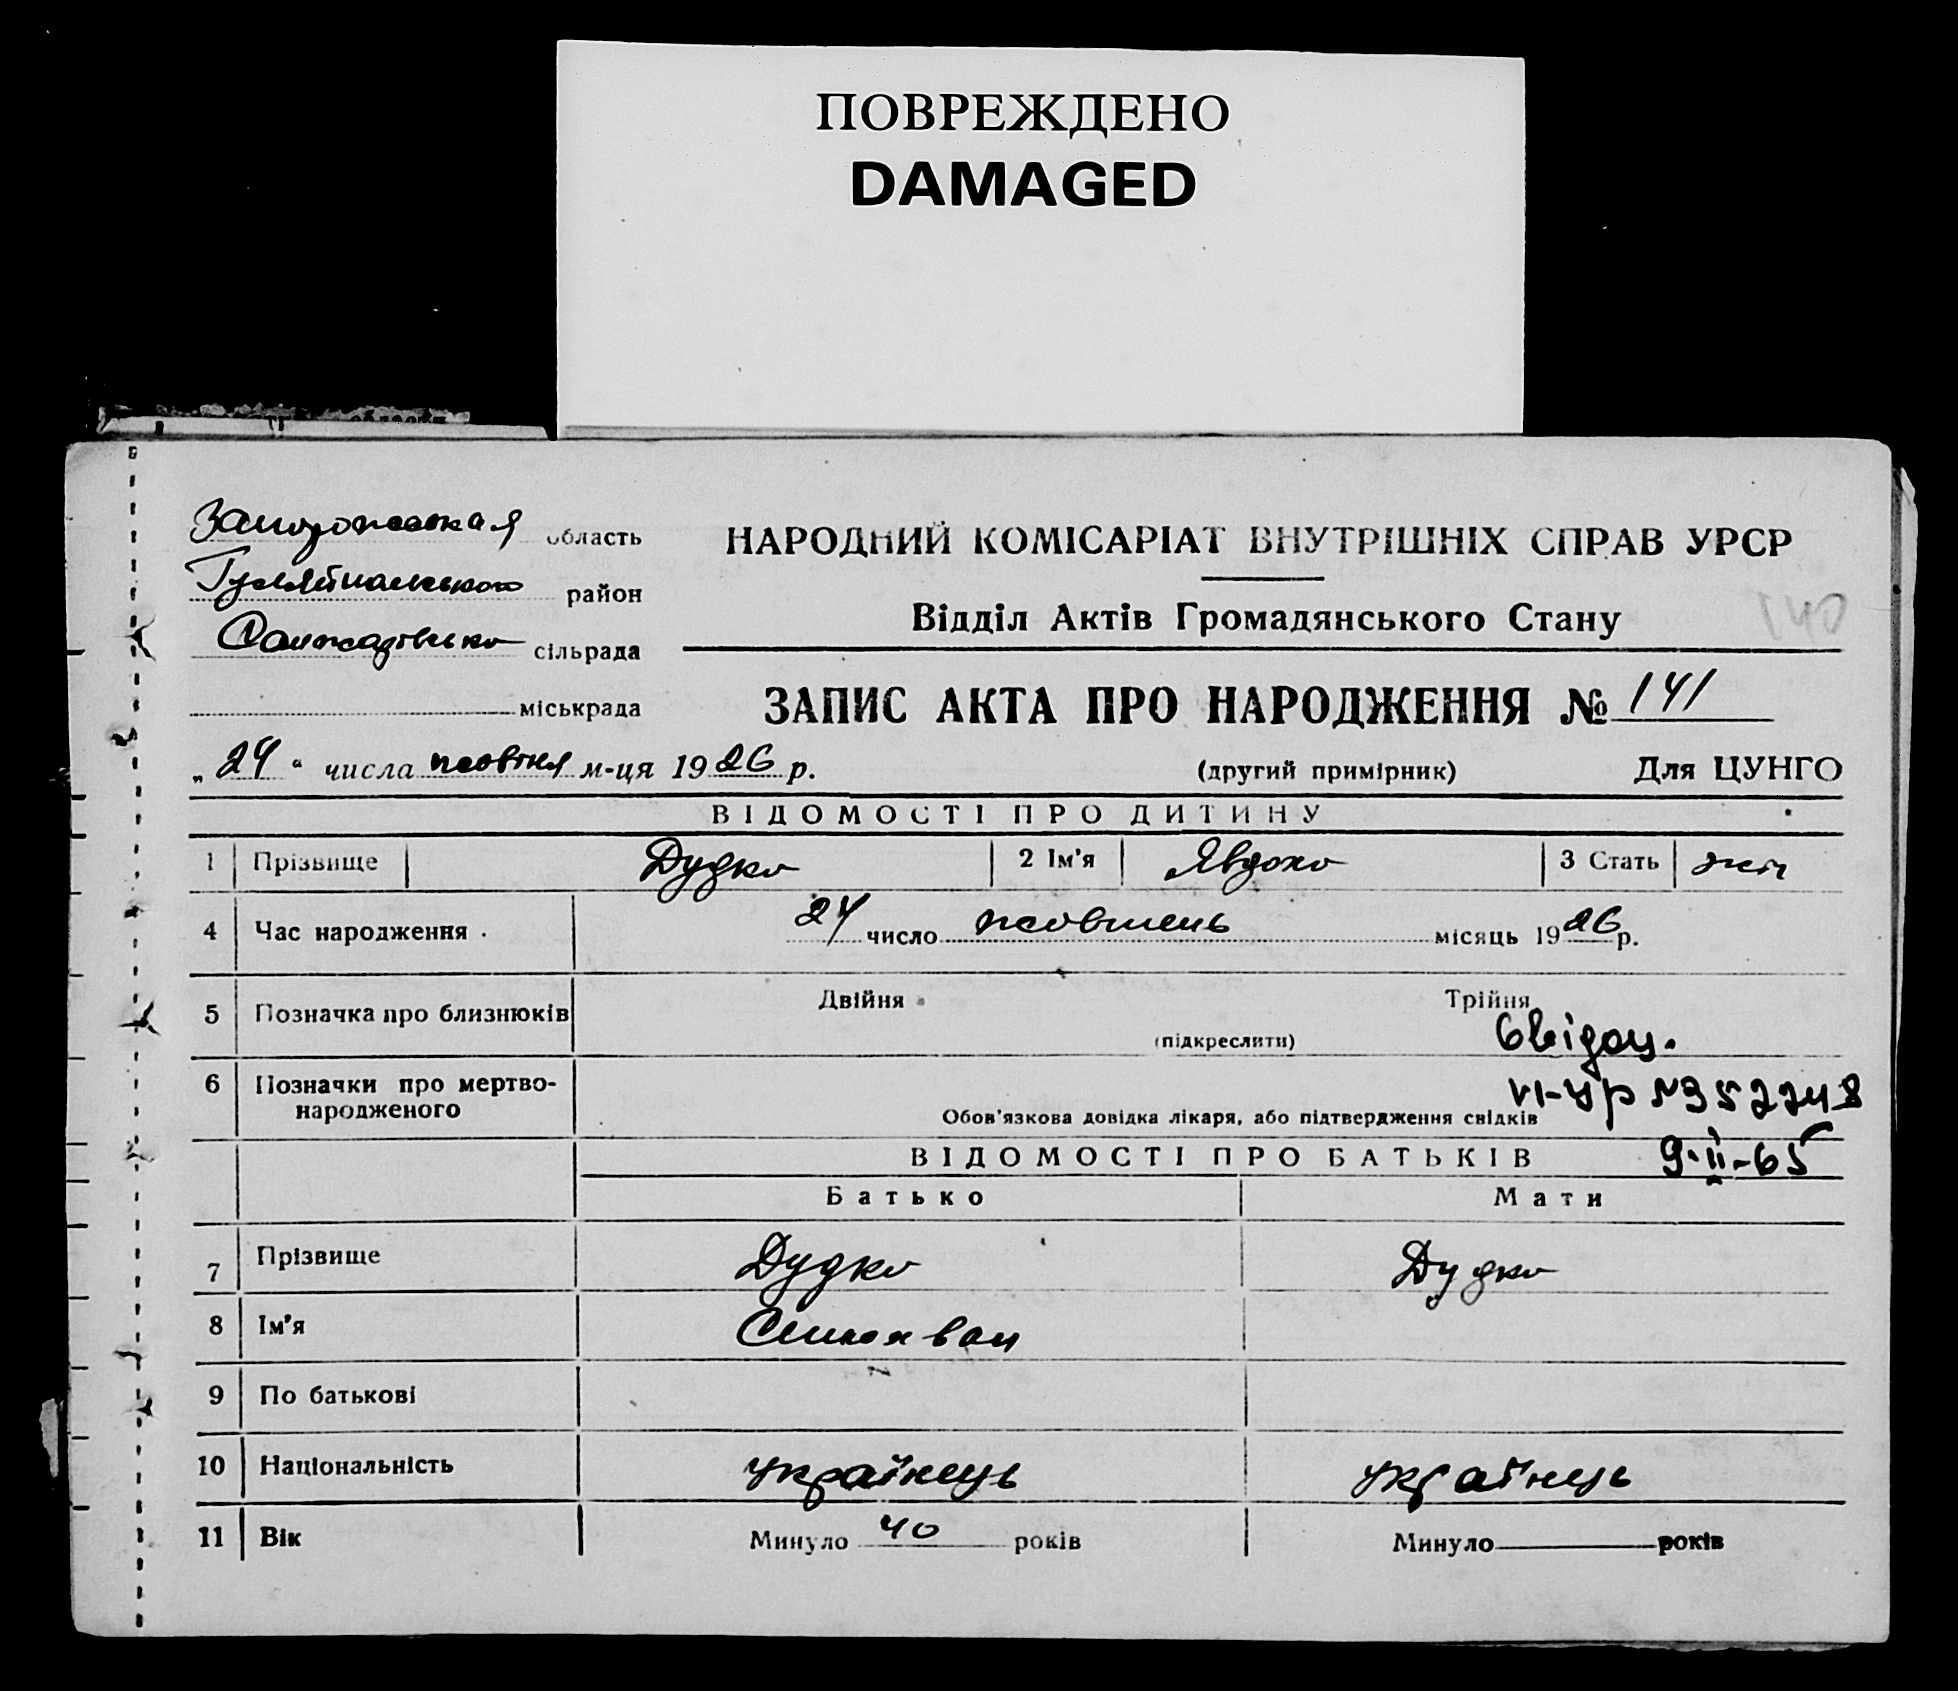 ПОВРЕЖДЕНО
DAMAGED
Запорожская область
Гуляйпольського район
сільрада
міськрада
НАРОДНИЙ КОМІСАРІАТ ВНУТРІШНІХ СПРАВ УРСР
140
Відділ Актів Громадянського Стану
ЗАПИС АКТА ПРО НАРОДЖЕННЯ № 141
„24" числа жовтня м-ця 1926 р.
(другий примірник) Для ЦУНГО
ВІДОМОСТІ ПРО ДИТИНУ
1 Прізвище Дудко 2 Ім'я Явдоко 3 Стать жін
4 Час народження 24 число жовтень місяць 1926 р.
5 Позначка про близнюків Двійня Трійня
(підкреслити) Свідоц.
6 Позначки про мертво-
народженого
VI-УР №352248
Обов'язкова довідка лікаря, або підтвердження свідків
ВІДОМОСТІ ПРО БАТЬКІВ 9-II-65
Батько Мати
7 Прізвище Дудко Дудко
8 Ім'я
9 По батькові
10 Національність українець українець
11 Вік Минуло 40 років Минуло років